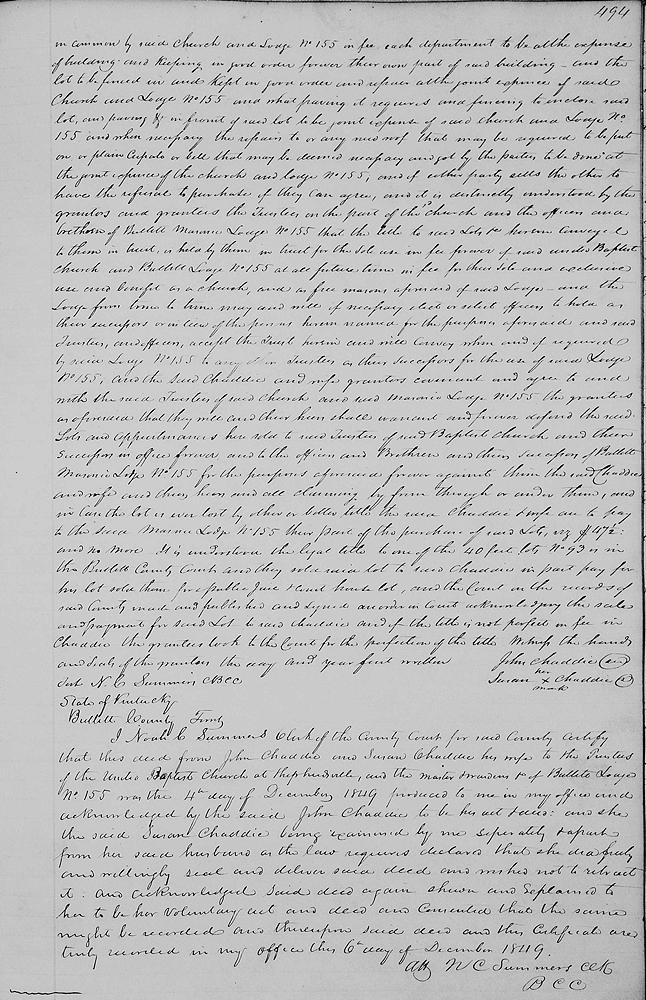 494
in common by said Church and Lodge No 155 in fee each department to be at the expense
of building and Keeping in good order forever their own part of said building - and the
lot to be fenced in and Kept in good order and repair at the joint expence of said
Church and Lodge No 155 and what paving it requires and fencing to inclose said
lot, and paving &c in front of said lot to be joint expense of said church and Lodge No
155 and when necessary the repairs to or any new roof that may be required to be put
on or plain Cupalo or bell that may be deemed necessary and got by the parties to be done at
the joint expence of the church and lodge No 155, and if either party sells the other to
have the refusal to purchase if they can agree, and it is distinctly understood by the
grantors and grantees the Trustees on the part of the church and the officers and
brethren of Bullitt Masonic Lodge No 155 that the title to said Lots &c herein Conveyed
to them in trust, is held by them in trust for the sole use in fee forever of said united Baptist
Church and Bullitt Lodge No 155 at all future time in fee for their sole and exclusive
use and benefit as a church, and as free masons aforesaid of said Lodge - and the
Lodge from time to time may and will if necessary elect or select officers to hold as
their successors or in lieu of the persons herein named for the purposes aforesaid and said
Trustees, and officers, accept the Trust herein and will Convey when and if required
by said Lodge No 155 to any Trustees as their Successors for the use of said Lodge
No 155, and the said Chaddic and wife grantors covenant and agree to and
with the said Trustees of said Church and said Masonic Lodge No 155 the grantees
as aforesaid that they will and their heirs shall warrant and forever defend the said
Lots and appurtenances here sold to said Trustees of said Baptist church and their
Successors in office forever and to the officers and Brethren and their Successors of Bullitt
Masonic Lodge No 155 for the purposes aforesaid forever against them the said Chaddic
and wife and their heirs and all claiming by from through or under them, and
in Case the lot is ever lost by other or better title the said Chaddic & wife are to pay
to the said Masonic Lodge No 155 their part of the purchase of said Lots, viz $47½:
and no more. It is understood the legal title to one of the 40 feet lots No 93 is in
the Bullitt County Court and they sold said lot to said Chaddic in part pay for
his lot sold them for a public Jail & Court house lot, and the Court on the records of
said County made and published and signed a record in Court acknowledging the sale
and payment for said Lot to said Chaddic and if the title is not perfect in fee in
Chaddic the grantees look to the Court for the perfection of the title Witness the hands
and seals of the grantors the day and year first written John Chaddic (seal)
Test N. C Summers CBCC Susan her x mark Chaddic
State of Kentucky
Bullitt County
I Noah C Summers Clerk of the County Court for said County certify
that this deed from John Chaddic and Susan Chaddic his wife to the Trustees
of the United Baptists Church at Shepherdsville, and the master & wardens &c of Bullitt Lodge
No 155 was the 4th day of December 1849 produced to me in my office and
acknowledged by the said John Chaddic to be his act & deed: and she
the said Susan Chaddic being examined by me seperately & apart
from her said husband as the law requires declared that she did freely
and willingly seal and deliver said deed and wished not to retract
it: and acknowledged said deed again shewn and explained to
her to be her voluntary act and deed and Consented that the same
might be recorded and thereupon said deed and this Certificate are
truly recorded in my office this 6th day of December 1849.
Att N C Summers clk
B C C